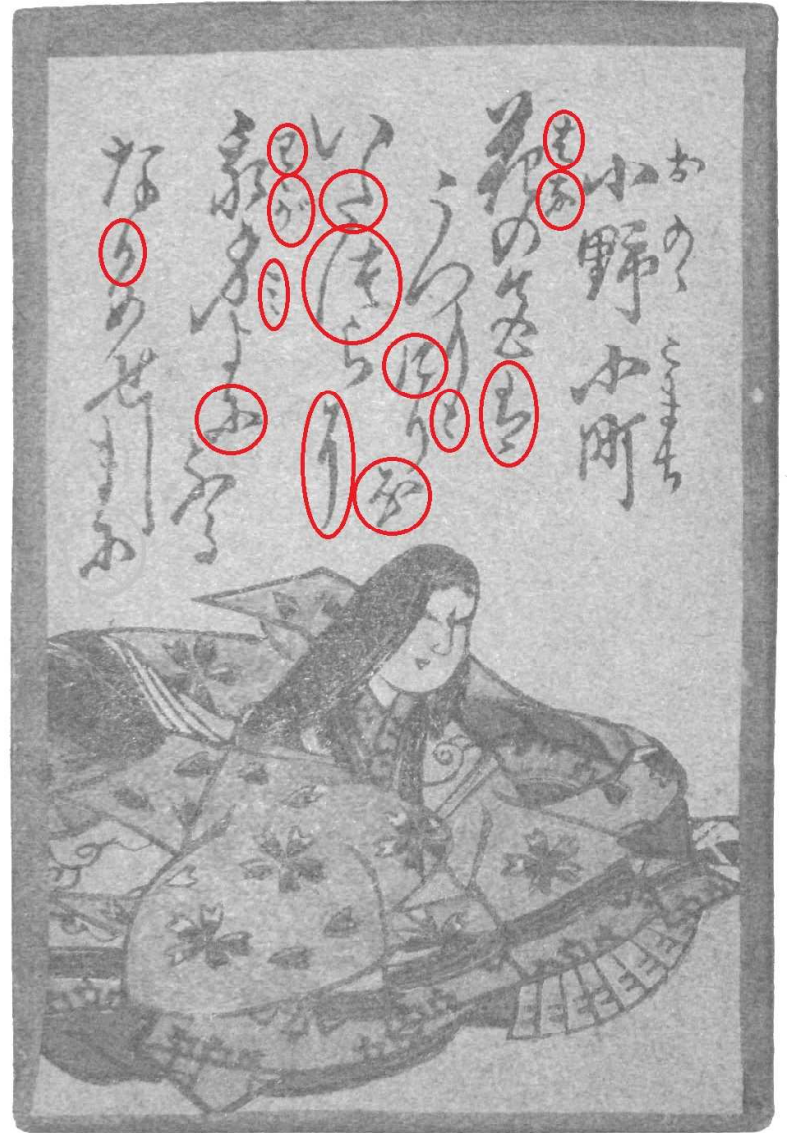 おのゝ こまち
小野小町
はな
花の色は
うつりにけりな
いたづらに
わが ミ
我身よにふる
ながめせしまに